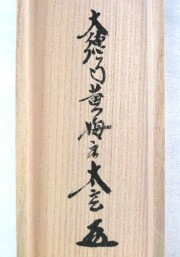 大徳門黄梅主太玄